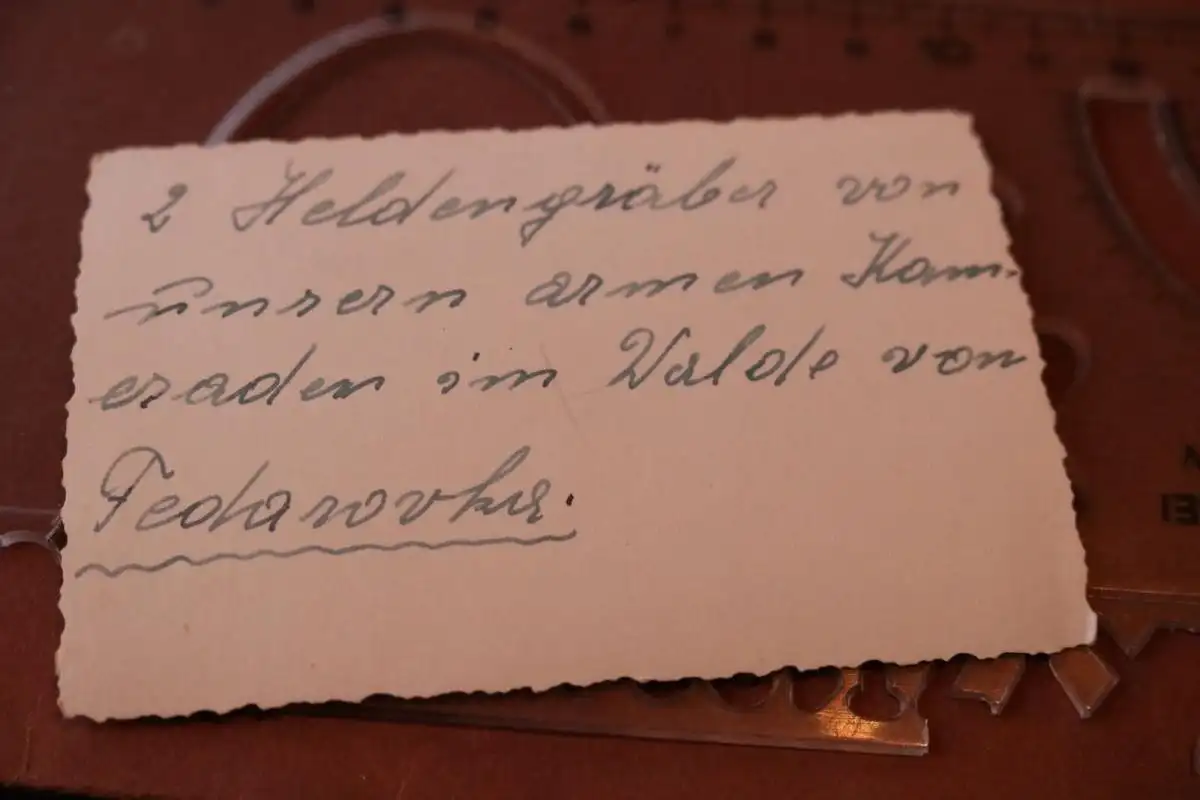 2 Heldengräber von
unsern armen Kam-
eraden im Walde von
Fedarovka.
10